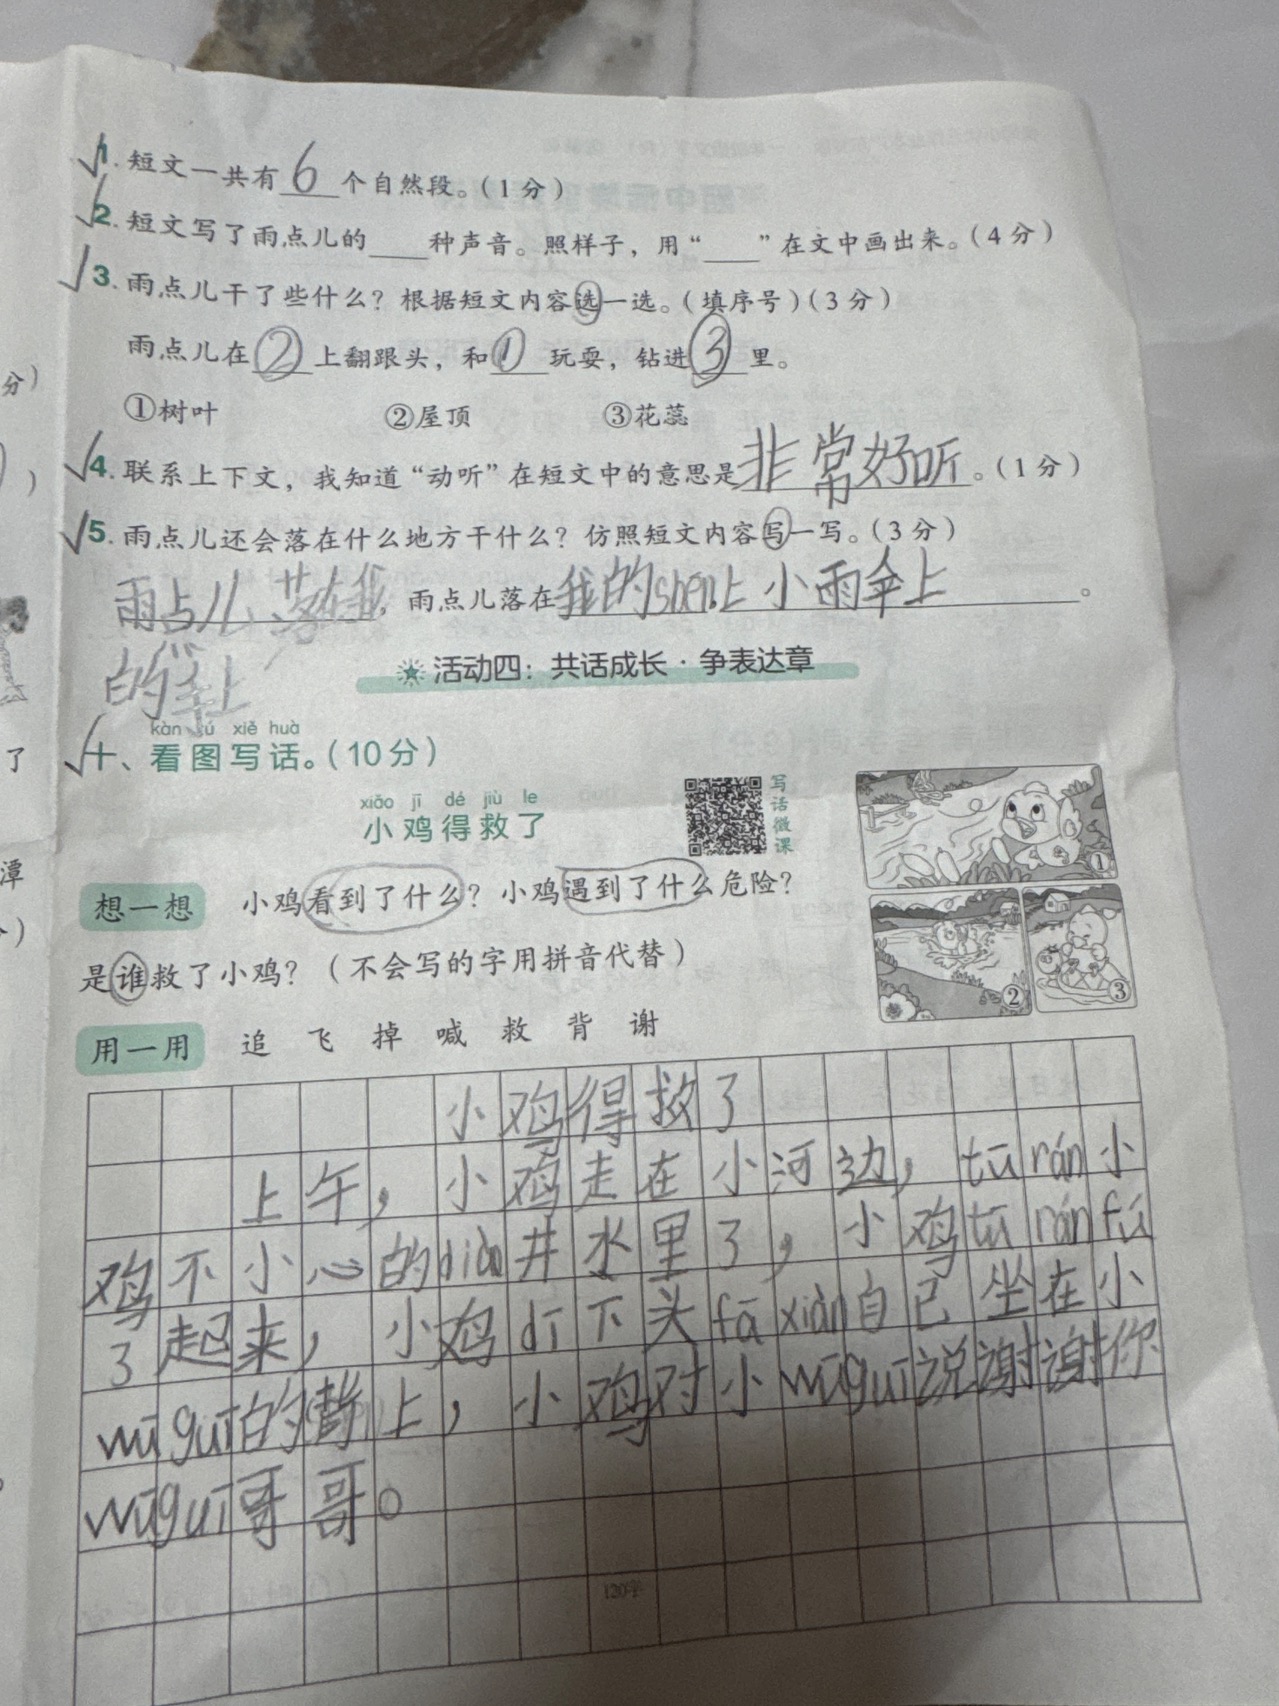 1. 短文一共有 6 个自然段。(1分)
2. 短文写了雨点儿的____种声音。照样子，用“____”在文中画出来。(4分)
3. 雨点儿干了些什么？根据短文内容选一选。(填序号)(3分)
雨点儿在②上翻跟头，和①玩耍，钻进③里。
①树叶 ②屋顶 ③花蕊
4. 联系上下文，我知道“动听”在短文中的意思是非常好听。(1分)
5. 雨点儿还会落在什么地方干什么？仿照短文内容写一写。(3分)
雨点儿落在我，雨点儿落在我的shēn上小雨伞上。
的伞上
活动四：共话成长·争表达章
kàn tú xiě huà
十、看图写话。(10分)
xiǎo jī dé jiù le
小鸡得救了
写话微课
想一想 小鸡看到了什么？小鸡遇到了什么危险？
是谁救了小鸡？(不会写的字用拼音代替)
① ② ③
用一用 追 飞 掉 喊 救 背 谢
小鸡得救了
上午，小鸡走在小河边，tū rán小
鸡不小心的diào井水里了，小鸡tū rán fú
了起来，小鸡dī下头fā xiàn自己坐在小
wū guī的上，小鸡对小wū guī说谢谢你
wū guī哥哥。
120字
分)
)
了
潭